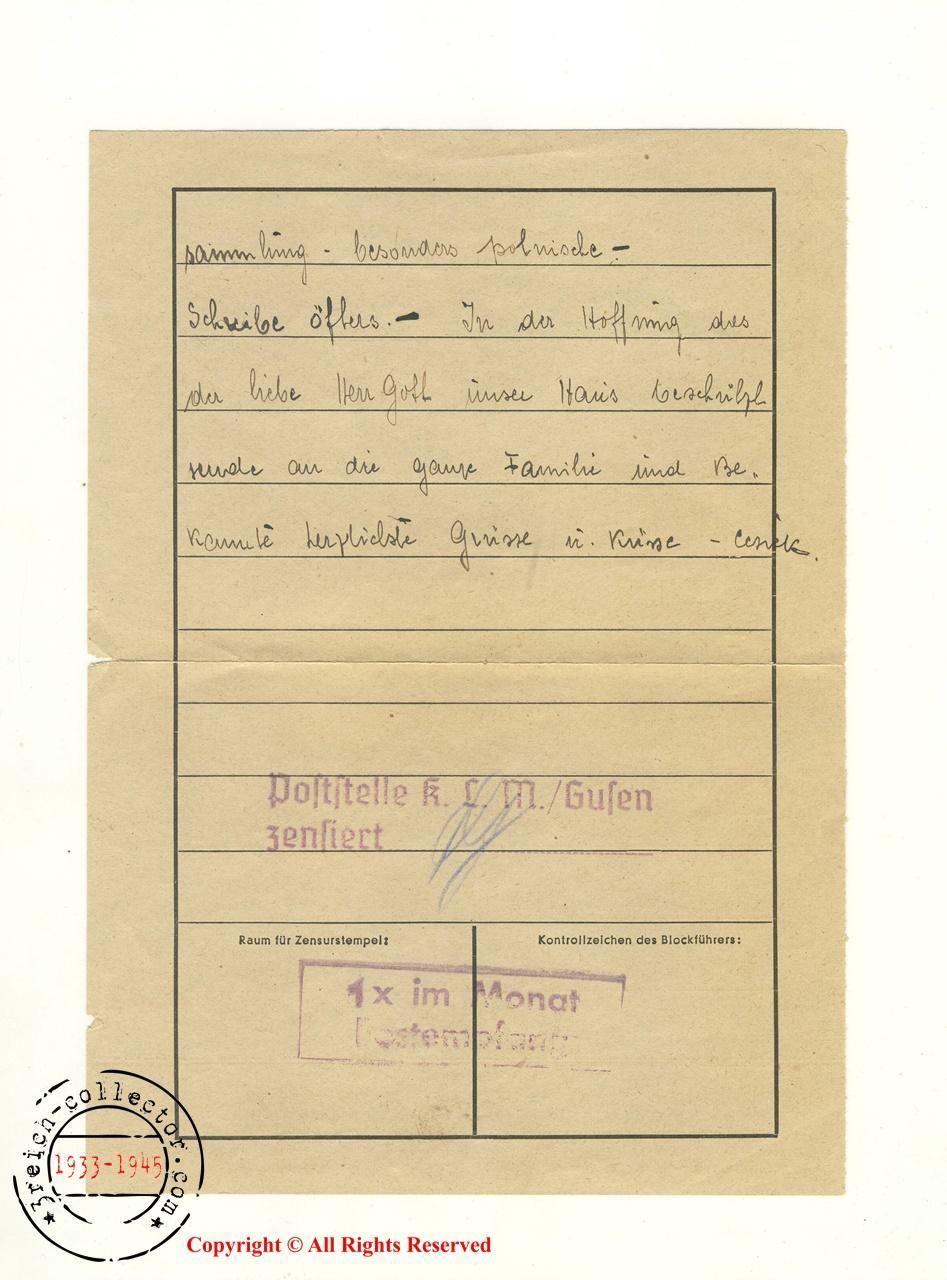 sammlung - besonders polnische.-
Schreibe öfters.- In der Hoffnung das
der liebe Herr Gott unser Haus beschützt
sende an die ganze Familie und Be-
kannte herzlichste Grüsse u. Küsse - Cesiek.
Poststelle K. L. M./Gusen
zensiert
Raum für Zensurstempel:
Kontrollzeichen des Blockführers:
1x im Monat
Postempfang
3reich-collector.com
1933-1945
Copyright © All Rights Reserved